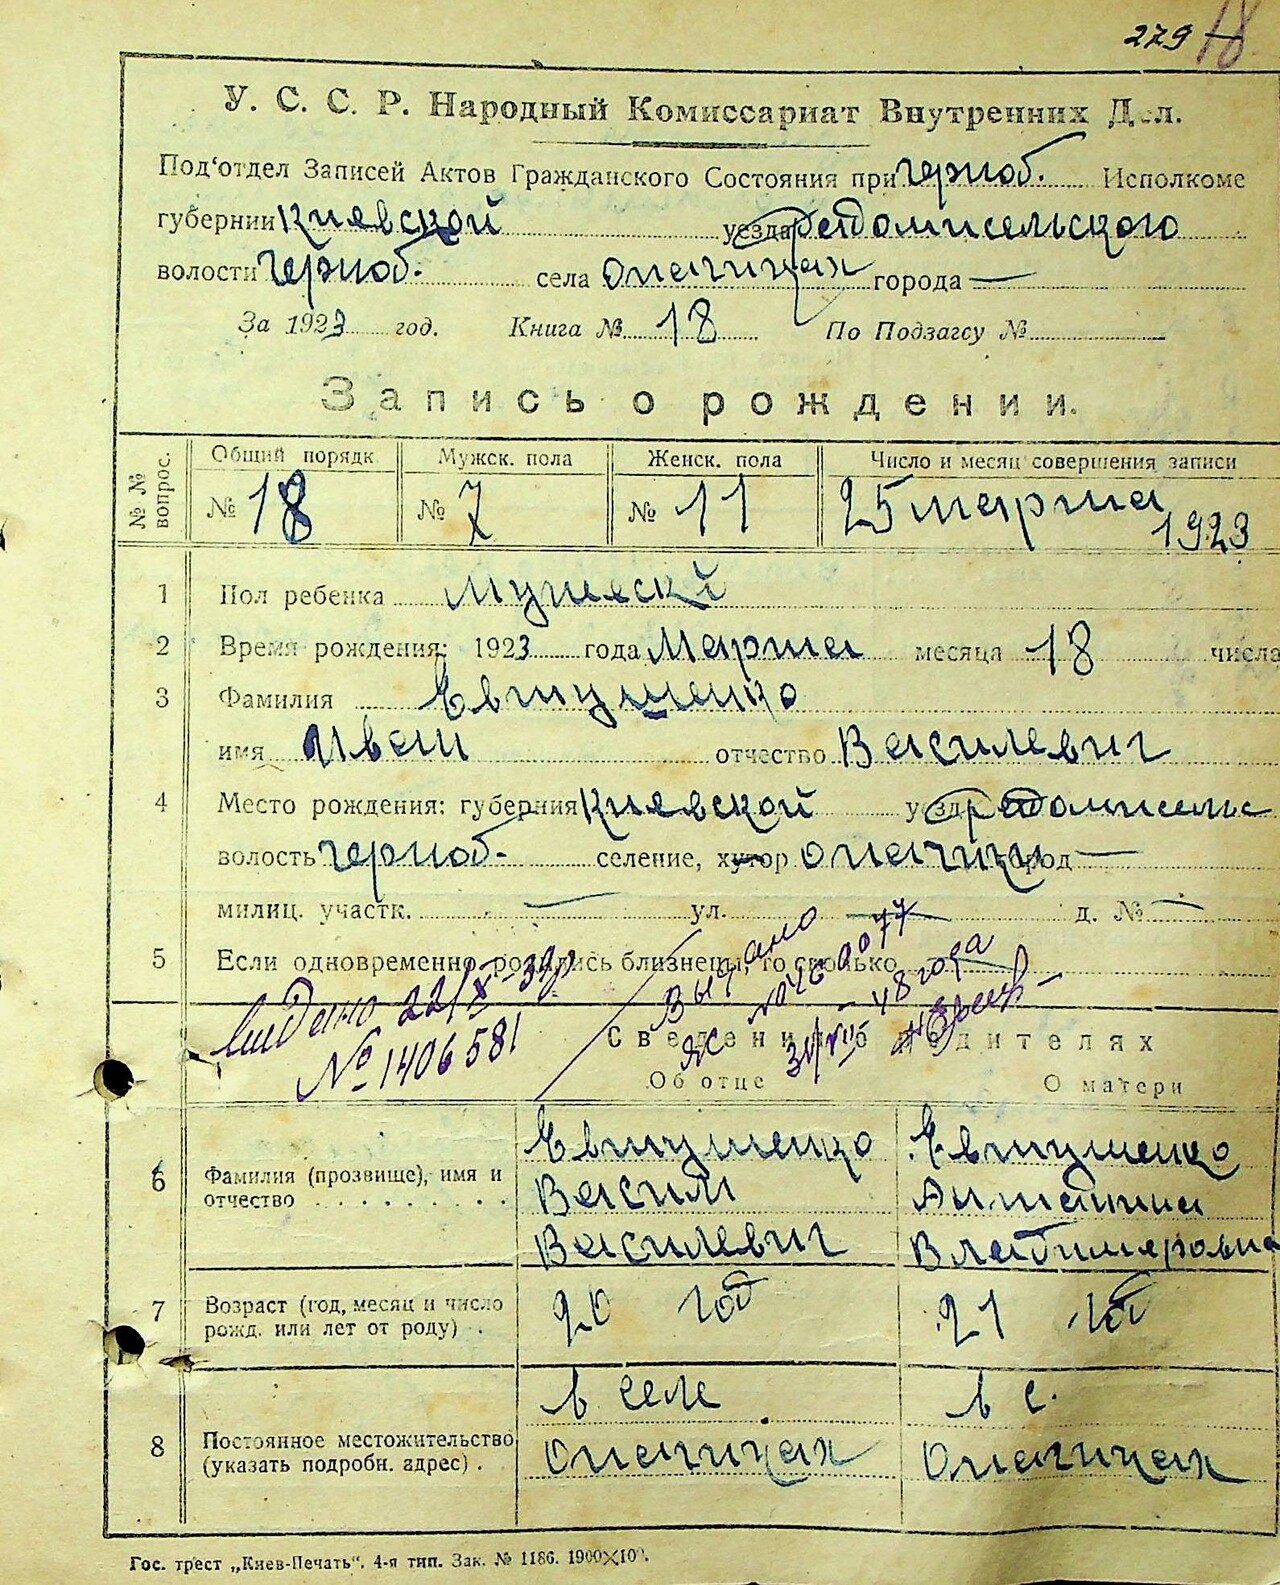 279 18
У. С. С. Р. Народный Комиссариат Внутренних Дел.
Под‘отдел Записей Актов Гражданского Состояния при Черноб. Исполкоме
губернии Киевской уезда Радомисельского
волости Черноб. села Опачицах города —
За 1923 год. Книга № 18 По Подзагсу №
Запись о рождении.
№ № вопрос. Общий порядк Мужск. пола Женск. пола Число и месяц совершения записи
№ 18 № 7 № 11 25 марта 1923
1 Пол ребенка Мужескй
2 Время рождения: 1923 года Марта месяца 18 числа
3 Фамилия Евтушенко
имя Иван отчество Василевич
4 Место рождения: губерния Киевской уезд Радомисельс
волость Черноб- селение, хутор Опачици город —
милиц. участк. — ул. — д. № —
5 Если одновременно родились близнецы, то сколько
Видано 22/X-39р
№ 1406581
Выдано
ЯС № 0460077
31/VII-48 года
Сведения об родителях
Об отце О матери
6 Фамилия (прозвище), имя и Евтушенко Евтушенко
отчество . . . . . . . . Васил Антанина
Василевич Владимеровна
7 Возраст (год, месяц и число 20 год 21 год
рожд. или лет от роду) .
в селе в с.
8 Постоянное местожительство Опачицах Опачицах
(указать подробн. адрес) .
Гос. трест „Киев-Печать“. 4-я тип. Зак. № 1186. 1900×100.